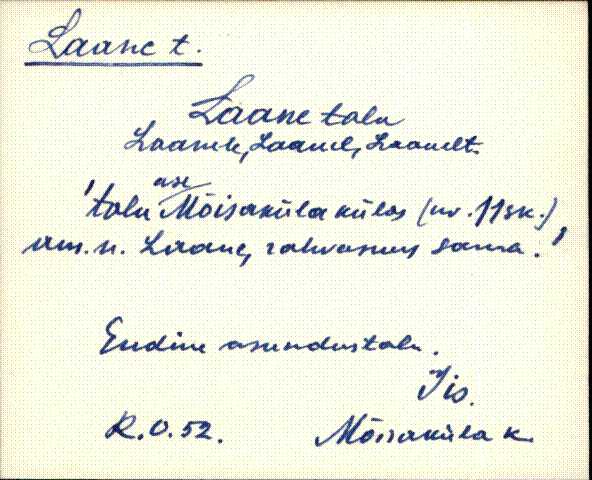 Laane t.
Laane talu
Laanele, Laanel, Laanelt.
ase
'talu Mõisaküla külas (nr. 11sk.)
am. n. Laane, rahvasuus sama.'
Endine asundustalu.
Jis.
R.O.52. Mõisaküla k.